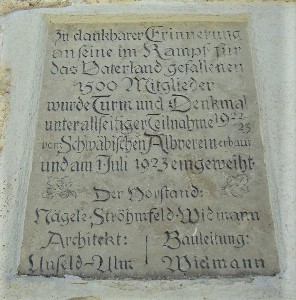 Zu dankbarer Erinnerung
an seine im Kampf für
das Vaterland gefallenen
1500 Mitglieder
wurde Turm und Denkmal
unter allseitiger Teilnahme 1922-23
vom Schwäbischen Albverein erbaut
und am 1. Juli 1923 eingeweiht
Der Vorstand:
Nägele-Ströhmfeld-Widmann
Architekt: Bauleitung:
Unseld-Ulm Widmann